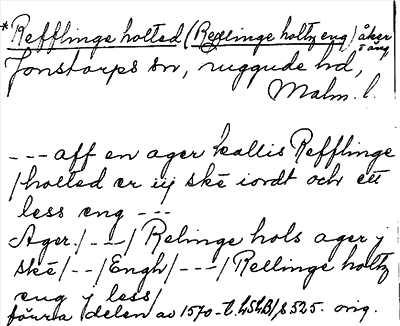 *Refflinge holted (Reglinge holtz eng) åker
o. äng
Jonstorps sn, Luggude hd,
Malm. l.
--- aff en ager kallis Refflinge
/holted er iij skē iordt och ett
less eng ---
Ager./---/ Relinge hols ager j
skē/--/Engh/---/Rellinge holtz
eng j less/
förra delen av 1570-t. LSLB/ s 525. orig.